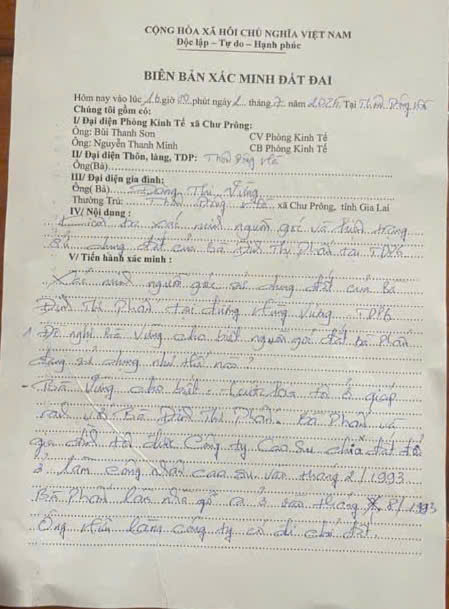 CỘNG HÒA XÃ HỘI CHỦ NGHĨA VIỆT NAM
Độc lập – Tự do – Hạnh phúc
BIÊN BẢN XÁC MINH ĐẤT ĐAI
Hôm nay vào lúc 16 giờ 00 phút ngày tháng năm 2025 Tại Thôn
Chúng tôi gồm có:
I/ Đại diện Phòng Kinh Tế xã Chư Prông:
Ông: Bùi Thanh Sơn CV Phòng Kinh Tế
Ông: Nguyễn Thanh Minh CB Phòng Kinh Tế
II/ Đại diện Thôn, làng, TDP: Thôn
Ông(Bà)
III/ Đại diện gia đình:
Ông( Bà) Thị Vững
Thường Trú: Thôn xã Chư Prông, tỉnh Gia Lai
IV/ Nội dung :
xác minh nguồn gốc và hiện trạng
sử dụng đất của bà Đinh Thị Phấn tại TDP6
V/ Tiến hành xác minh :
Xác minh nguồn gốc sử dụng đất của bà
Đinh Thị Phấn tại đường Hùng Vương TDP6
Đề nghị bà Vững cho biết nguồn gốc đất bà Phấn
đang sử dụng như thế nào?
- Bà Vững cho biết: tôi ở giáp
ranh với Bà Đinh Thị Phấn. Bà Phấn và
gia đình tôi được Công ty Cao Su chia đất để
ở làm công nhân cao su vào tháng 2/1993
Bà Phấn làm nhà gỗ ra ở vào tháng 8/1993
Ông làm công ty có đi chỉ đất.